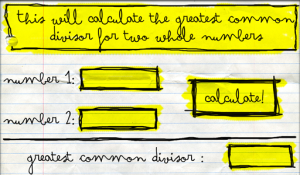 this will calculate the greatest common
divisor for two whole numbers
number 1:
calculate!
number 2:
greatest common divisor :